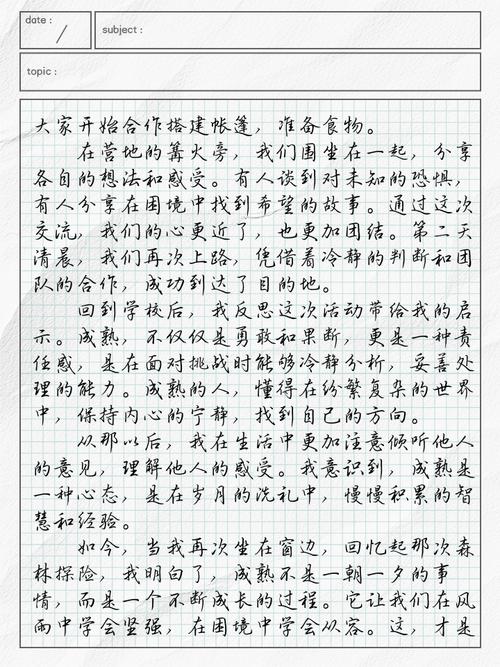 date :
subject :
topic :
大家开始合作搭建帐篷，准备食物。
在营地的篝火旁，我们围坐在一起，分享
各自的想法和感受。有人谈到对未知的恐惧，
有人分享在困境中找到希望的故事。通过这次
交流，我们的心更近了，也更加团结。第二天
清晨，我们再次上路，凭借着冷静的判断和团
队的合作，成功到达了目的地。
回到学校后，我反思这次活动带给我的启
示。成熟，不仅仅是勇敢和果断，更是一种责
任感，是在面对挑战时能够冷静分析，妥善处
理的能力。成熟的人，懂得在纷繁复杂的世界
中，保持内心的宁静，找到自己的方向。
从那以后，我在生活中更加注意倾听他人
的意见，理解他人的感受。我意识到，成熟是
一种心态，是在岁月的洗礼中，慢慢积累的智
慧和经验。
如今，当我再次坐在窗边，回忆起那次森
林探险，我明白了，成熟不是一朝一夕的事
情，而是一个不断成长的过程。它让我们在风
雨中学会坚强，在困境中学会从容。这，才是